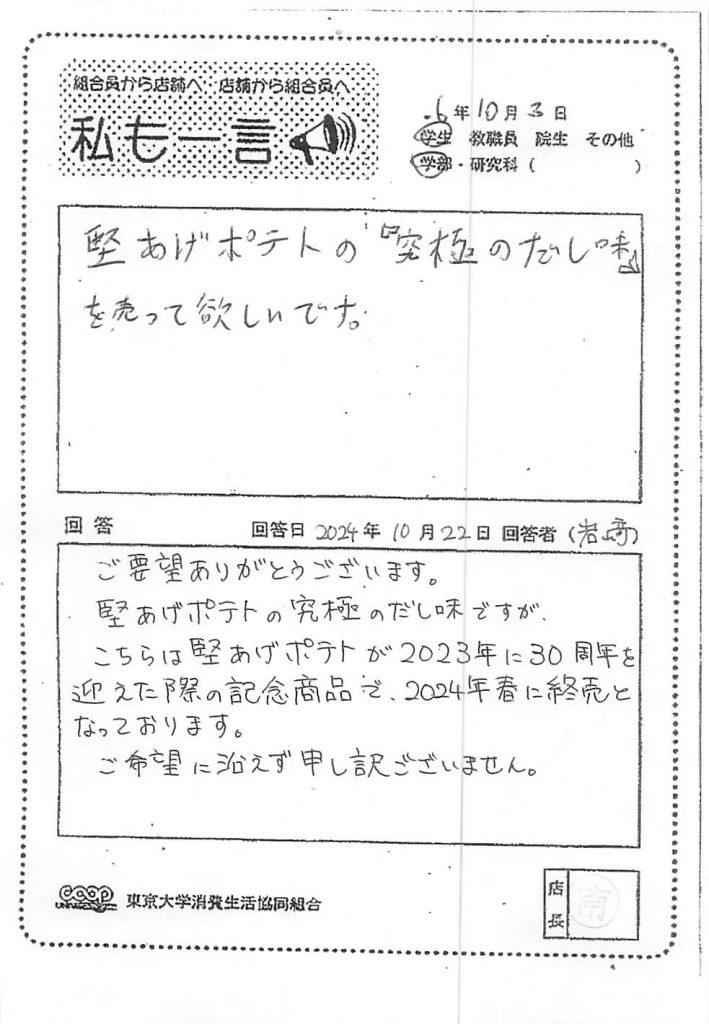 組合員から店舗へ 店舗から組合員へ
私も一言
6年10月3日
学生 教職員 院生 その他
学部・研究科( )
堅あげポテトの『究極のだし味』
を売って欲しいです。
回答 回答日 2024年10月22日 回答者(岩崎)
ご要望ありがとうございます。
堅あげポテトの究極のだし味ですが、
こちらは堅あげポテトが2023年に30周年を
迎えた際の記念商品で、2024年春に終売と
なっております。
ご希望に沿えず申し訳ございません。
coop 東京大学消費生活協同組合
UNIV.
店長
南